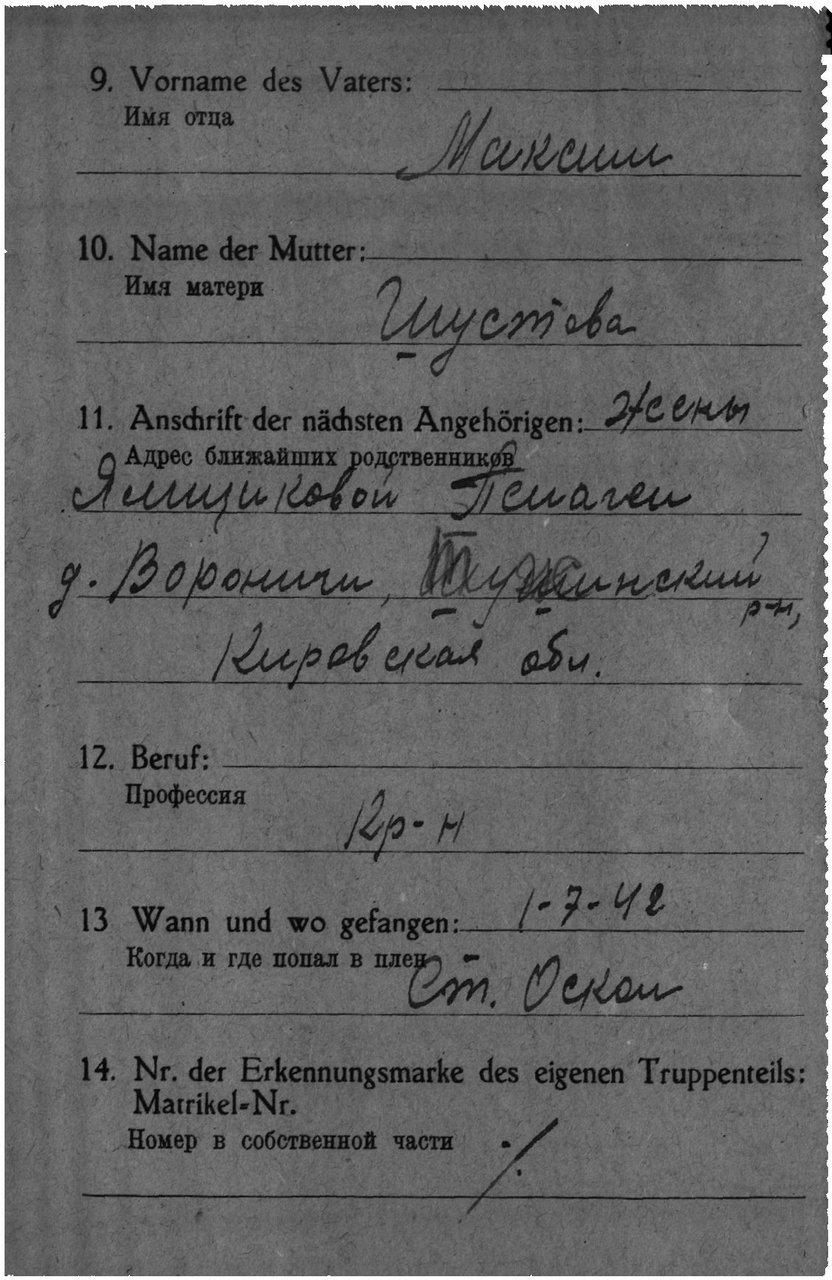 9. Vorname des Vaters:
Имя отца
Максим
10. Name der Mutter:
Имя матери
Шустова
11. Anschrift der nächsten Angehörigen: жены
Адрес ближайших родственников
Ямщиковой Пелагеи
д. Вороничи,
р-н,
Кировская обл.
12. Beruf:
Профессия
Кр-н
13 Wann und wo gefangen: 1-7-42
Когда и где попал в плен
Ст. Оскол
14. Nr. der Erkennungsmarke des eigenen Truppenteils:
Matrikel-Nr.
Номер в собственной части